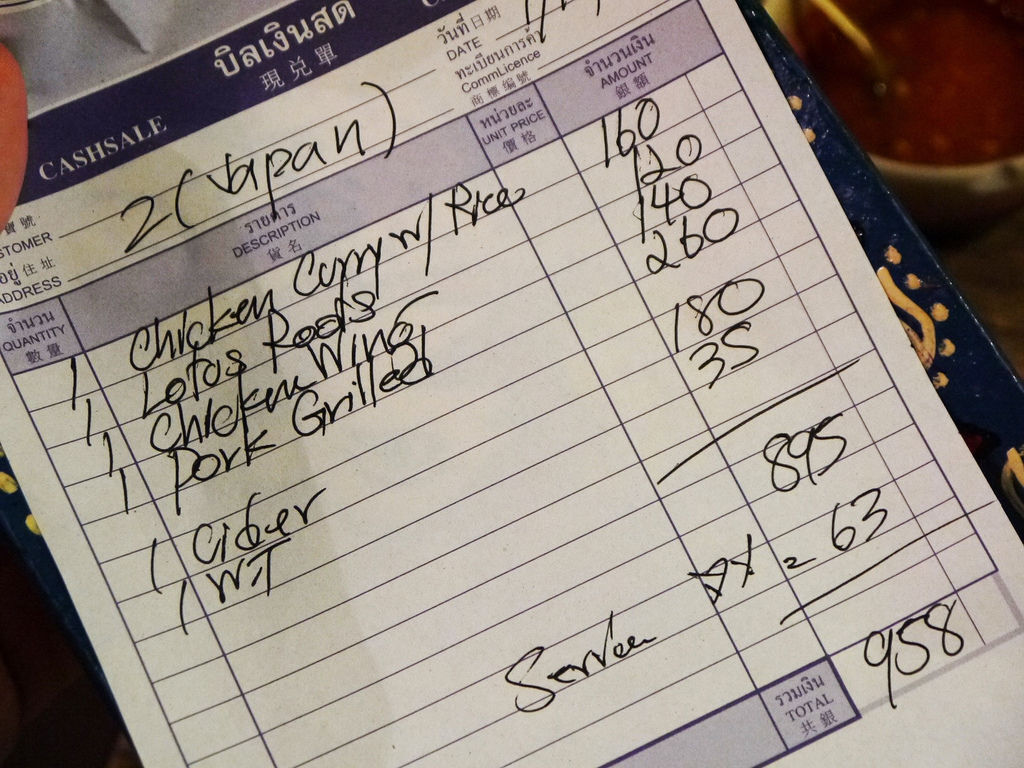 บิลเงินสด
現兌單
CASHSALE
วันที่ 日期
DATE
ทะเบียนการค้า
CommLicence
商標編號
2 (Japan)
寶號
STOMER
อยู่ 住址
ADDRESS
จำนวน
QUANTITY
數量
รายการ
DESCRIPTION
貨名
หน่วยละ
UNIT PRICE
價格
จำนวนเงิน
AMOUNT
銀額
1 Chicken Curry w/ Rice 160
1 Lotus Roots 120
1 Chicken Wing 140
1 Pork Grilled 260
1 Cider 180
1 WT 35
895
Service 7% = 63
รวมเงิน
TOTAL
共銀
958